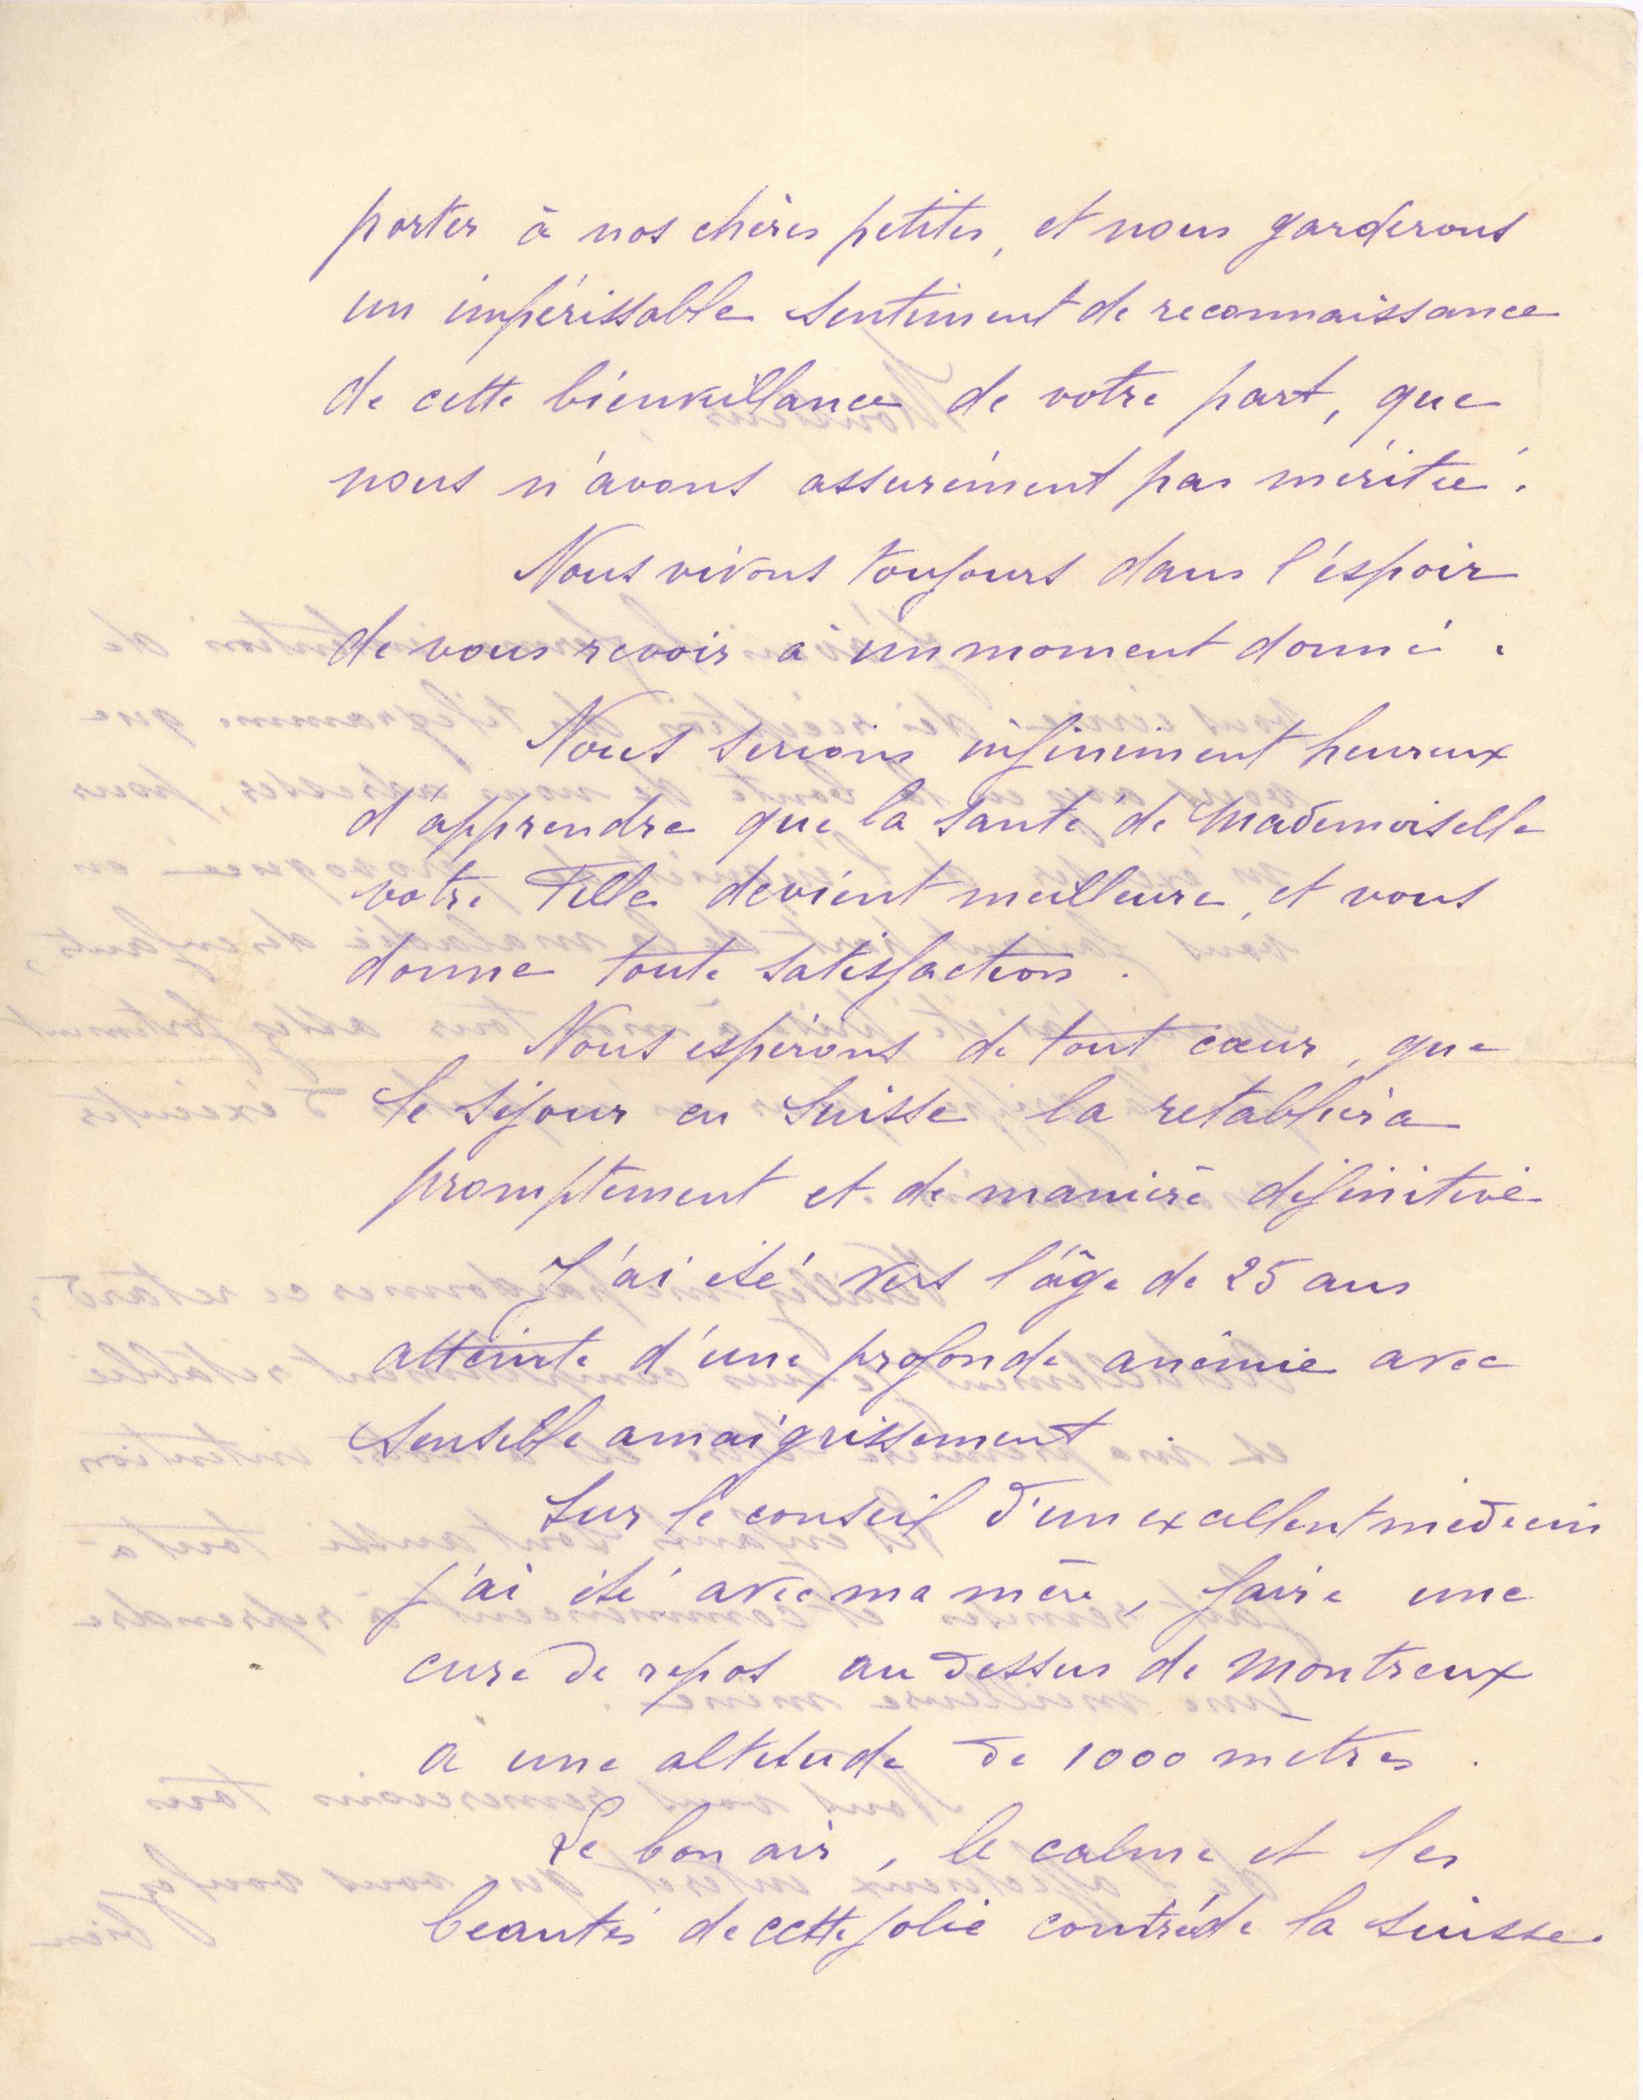 porter à nos chères petites, et nous garderons
un impérissable sentiment de reconnaissance
de cette bienveillance de votre part, que
nous n'avons assurément pas méritée.
Nous vivons toujours dans l'éspoir
de vous revoir a un moment donné.
Nous serions infiniment heureux
d'apprendre que la santé de Mademoiselle
votre Fille devient meilleure, et vous
donne toute satisfaction.
Nous espérons de tout cœur, que
le séjour en Suisse la retablira
promptement et de manière définitive
J'ai été vers l'âge de 25 ans
atteinte d'une profonde anémie avec
sensible amaigrissement
Sur le conseil d'un excellent médecin
j'ai été avec ma mère, faire une
cure de repos au dessus de Montreux
à une altitude de 1000 mètres.
Le bon air, le calme et les
beautés de cette jolie contrée de la Suisse.